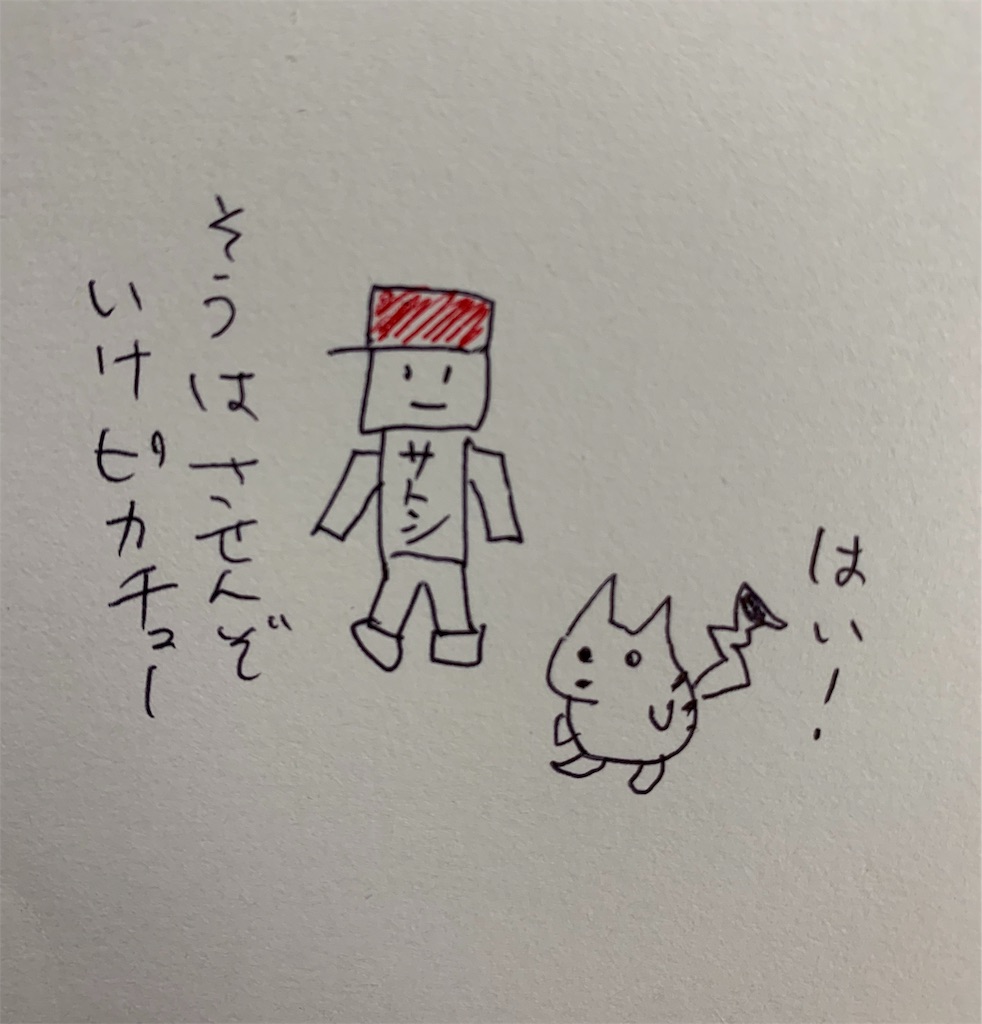 そうはさせんぞ
いけピカチュー
サトシ
はい!